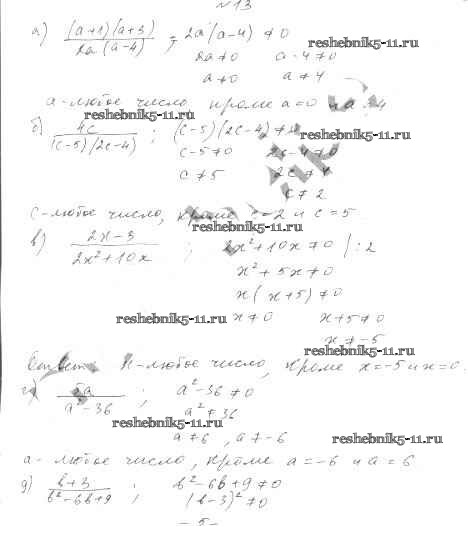 №13
а) (a+1)(a+3) / 2a(a-4) ; 2a(a-4) ≠ 0
2a ≠ 0 a-4 ≠ 0
reshebnik5-11.ru
a ≠ 0 a ≠ 4
a - любое число, кроме a=0 и a=4
reshebnik5-11.ru
б) 4c / (c-5)(2c-4) ; (c-5)(2c-4) ≠ 0
reshebnik5-11.ru
c-5 ≠ 0 2c-4 ≠ 0
c ≠ 5 2c ≠ 4
c ≠ 2
c - любое число, кроме c=2 и c=5
reshebnik5-11.ru
в) 2x-3 / 2x²+10x ; 2x²+10x ≠ 0 |:2
x²+5x ≠ 0
x(x+5) ≠ 0
reshebnik5-11.ru x ≠ 0 x+5 ≠ 0
reshebnik5-11.ru
x ≠ -5
Ответ: x - любое число, кроме x=-5 и x=0.
г) 5a / a²-36 ; a²-36 ≠ 0
a² ≠ 36
reshebnik5-11.ru
a ≠ 6, a ≠ -6
reshebnik5-11.ru
a - любое число, кроме a=-6 и a=6
д) b+3 / b²-6b+9 ; b²-6b+9 ≠ 0
(b-3)² ≠ 0
- 5 -